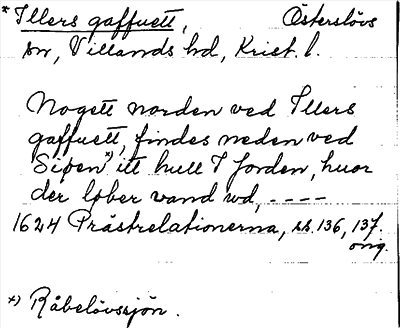 * Illers gaffuett, Österslövs
sn, Villands hd, Krist. l.
Nogett norden ved Illers
gaffuett, findes neden ved
Siøen*) itt hull I Jorden, huor
der løber vand ud, ----
1624 Prästrelationerna, ss. 136, 137.
orig.
*) Råbelövssjön.